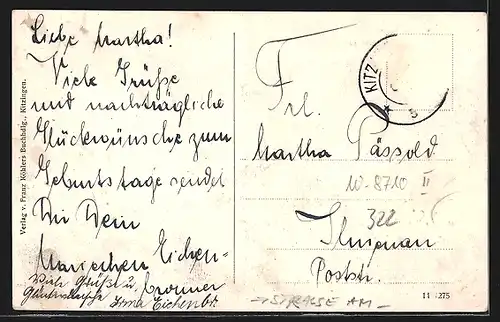 Liebe Martha!
Viele Grüße
und nachträgliche
Glückwünsche zum
Geburtstage sendet
Dir Dein
Mariechen Eichen-
bronner
Viele Grüße u.
Glückwünsche Irma Eichenbr.
Verlag v. Franz Köhlers Buchhdlg., Kitzingen.
KITZ
Frl.
Martha Pässold
10-8710 II
322
Ilmenau
Poststr.
STRASSE AM
11 275